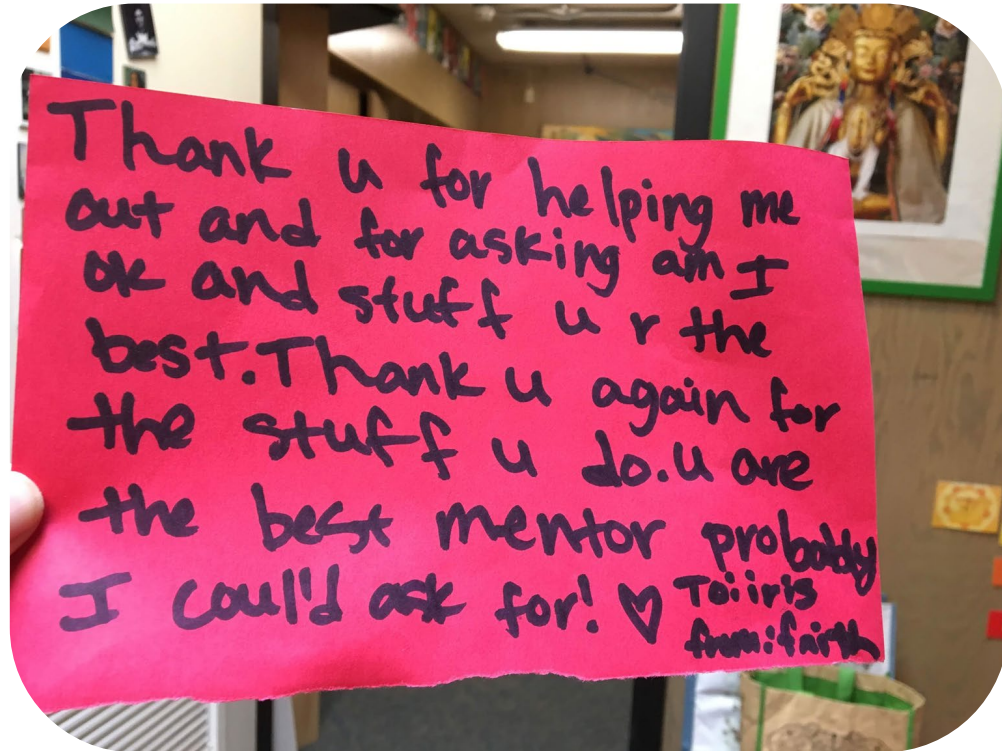 Thank u for helping me
out and for asking am I
ok and stuff u r the
best. Thank u again for
the stuff u do. u are
the best mentor probably
I coul'd ask for! ♡ To: iris
from: faith